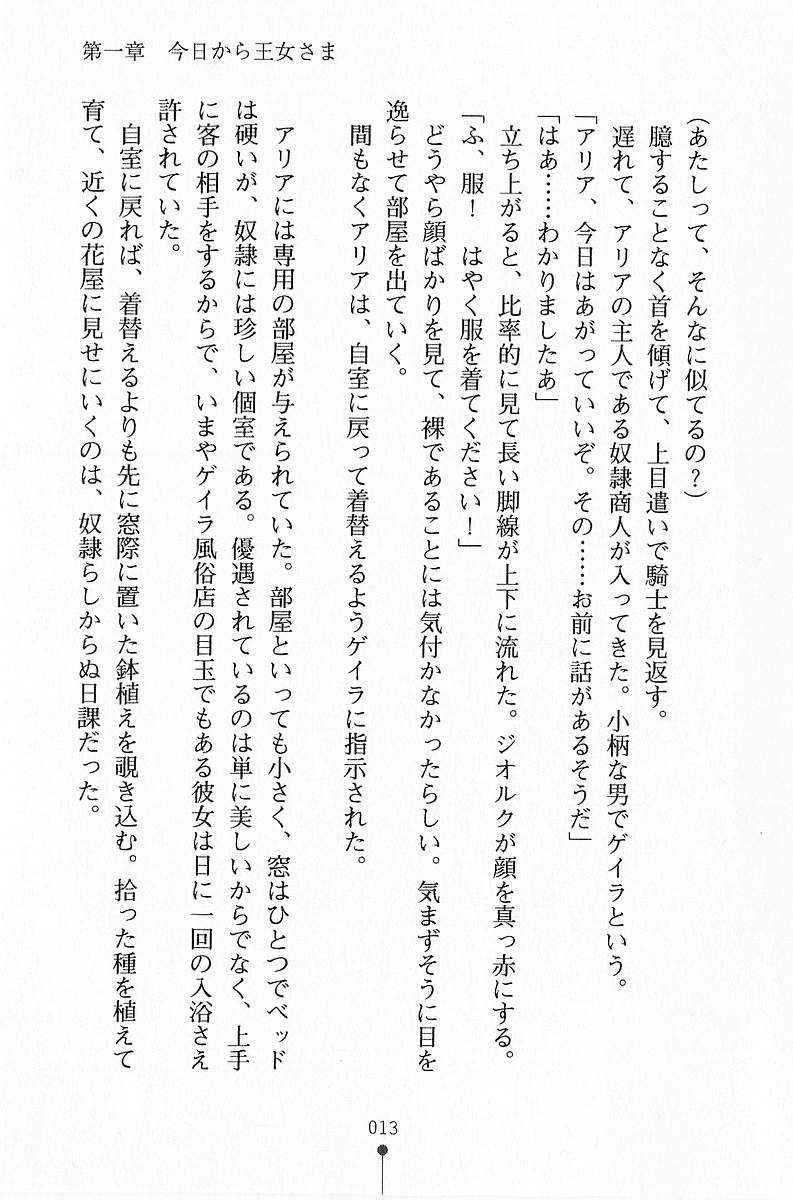 第一章　今日から王女さま
（あたしって、そんなに似てるの？）
臆することなく首を傾げて、上目遣いで騎士を見返す。
遅れて、アリアの主人である奴隷商人が入ってきた。小柄な男でゲイラという。
「アリア、今日はあがっていいぞ。その……お前に話があるそうだ」
「はあ……わかりましたあ」
立ち上がると、比率的に見て長い脚線が上下に流れた。ジオルクが顔を真っ赤にする。
「ふ、服！　はやく服を着てください！」
どうやら顔ばかりを見て、裸であることには気付かなかったらしい。気まずそうに目を
逸らせて部屋を出ていく。
間もなくアリアは、自室に戻って着替えるようゲイラに指示された。
アリアには専用の部屋が与えられていた。部屋といっても小さく、窓はひとつでベッド
は硬いが、奴隷には珍しい個室である。優遇されているのは単に美しいからでなく、上手
に客の相手をするからで、いまやゲイラ風俗店の目玉でもある彼女は日に一回の入浴さえ
許されていた。
自室に戻れば、着替えるよりも先に窓際に置いた鉢植えを覗き込む。拾った種を植えて
育て、近くの花屋に見せにいくのは、奴隷らしからぬ日課だった。
013